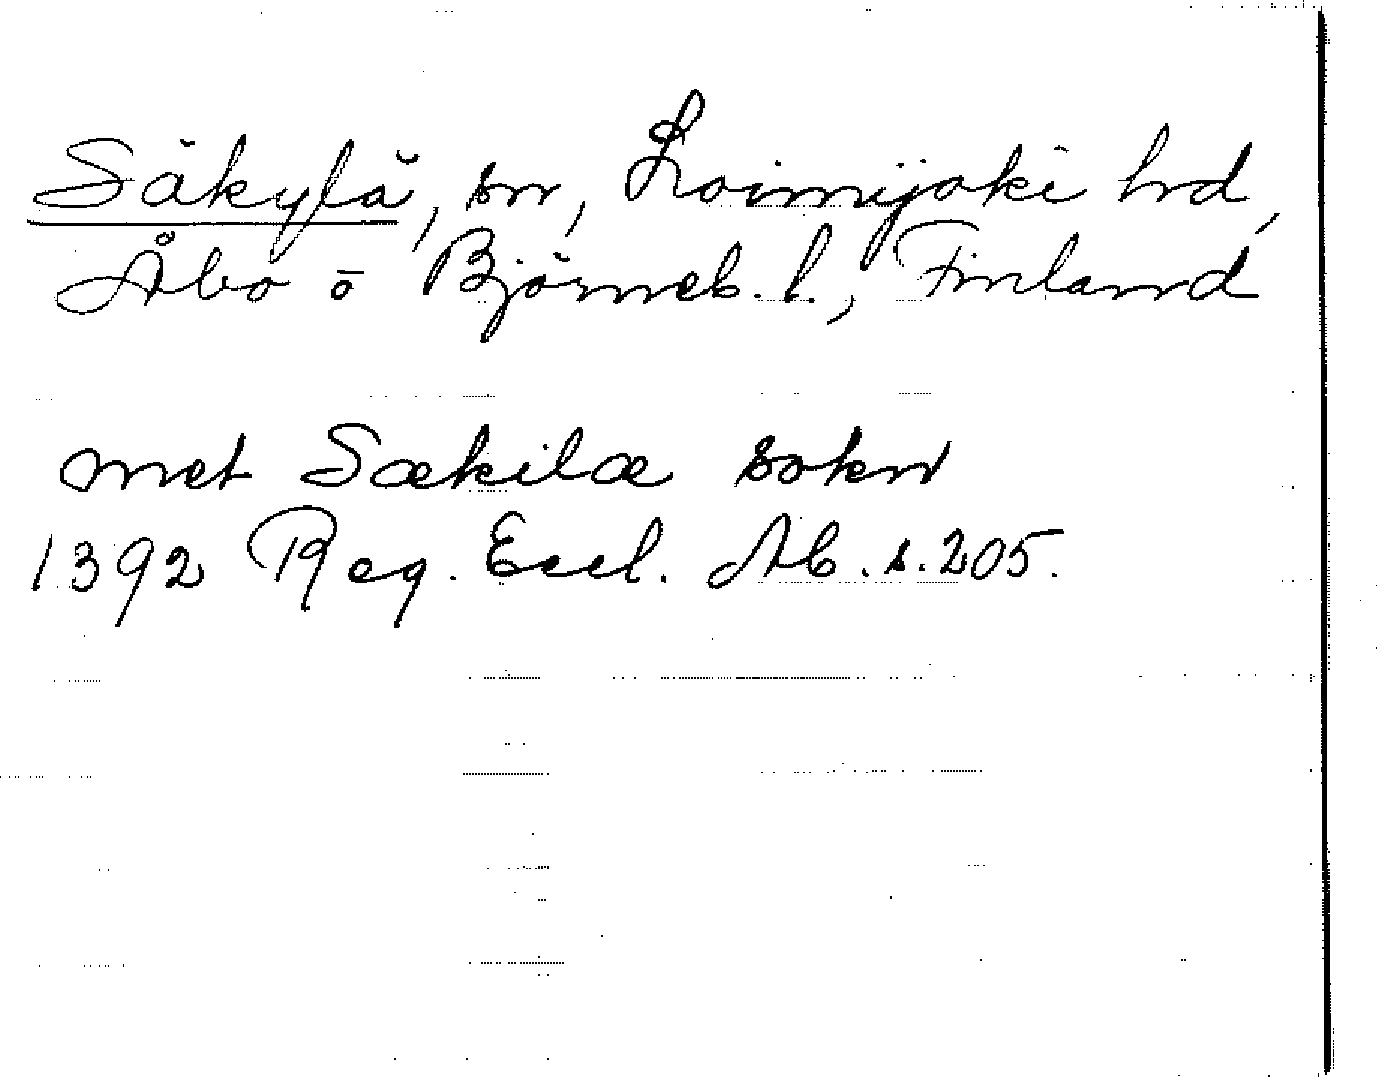 Säkylä, sn, Loimijoki hrd,
Åbo o Björneb. l., Finland
met Sækilæ sokn
1392 Reg. Eccl. Ab. s. 205.